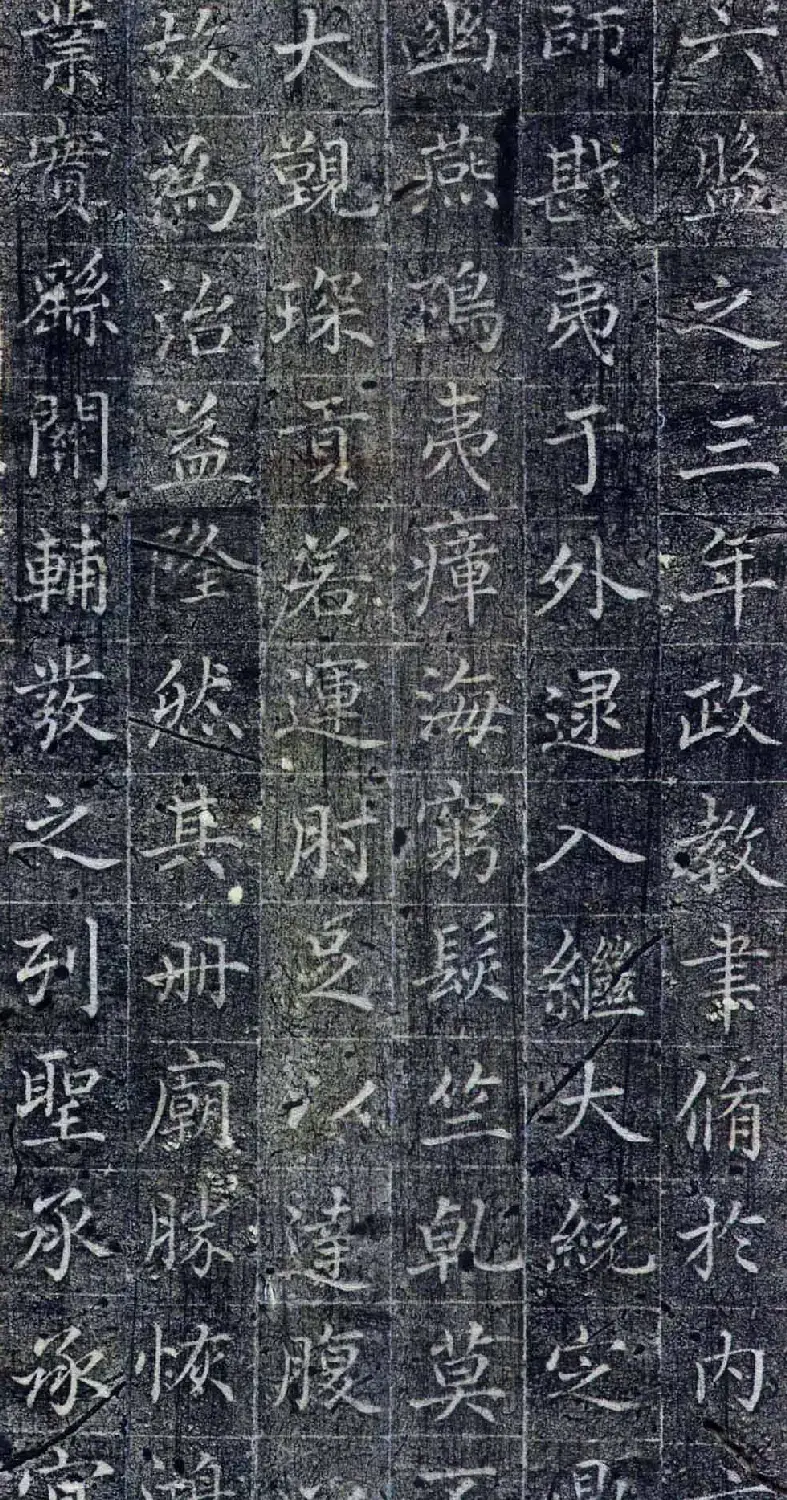 六盬之三年政教聿脩於内
師戡夷于外逮入繼大統定鼎
幽燕鴻夷瘴海窮髮竺乾莫
大覲琛貢若運肘足以達腹
故為治益隆然其册廟勝恢鴻
業實繇關輔發之列聖承承